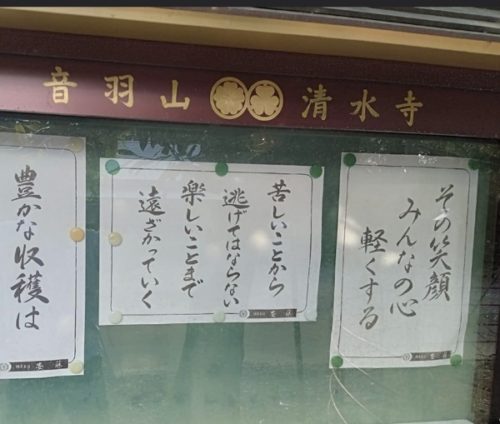 音羽山 清水寺
その笑顔
みんなの心
軽くする
苦しいことから
逃げてはならない
楽しいことまで
遠ざかっていく
豊かな収穫は